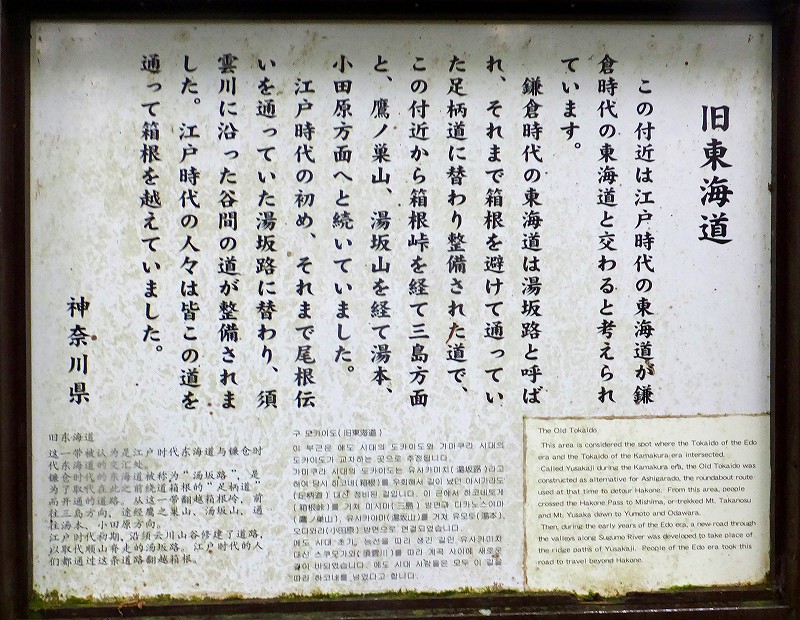 旧東海道
この付近は江戸時代の東海道が鎌
倉時代の東海道と交わると考えられ
ています。
鎌倉時代の東海道は湯坂路と呼ば
れ、それまで箱根を避けて通ってい
た足柄道に替わり整備された道で、
この付近から箱根峠を経て三島方面
と、鷹ノ巣山、湯坂山を経て湯本、
小田原方面へと続いていました。
江戸時代の初め、それまで尾根伝
いを通っていた湯坂路に替わり、須
雲川に沿った谷間の道が整備されま
した。江戸時代の人々は皆この道を
通って箱根を越えていました。
神奈川県
旧东海道
这一带被认为是江户时代东海道与镰仓时
代东海道的交汇处。
镰仓时代的东海道被称为“汤坂路”，是
为了取代在此之前绕道箱根的“足柄道”
而开通的道路。从这一带翻越箱根岭，前
往三岛方向，途经鹰之巢山、汤坂山，通
往汤本、小田原方向。
江户时代初期，沿须云川山谷修建了道路，
以取代顺山脊走的汤坂路。江户时代的人
们都通过这条道路翻越箱根。
구 도카이도(旧東海道)
이 부근은 에도 시대의 도카이도와 가마쿠라 시대의
도카이도가 교차하는 곳으로 추정됩니다.
가마쿠라 시대의 도카이도는 유사카미치(湯坂路)라고
하여 당시 하코네(箱根)를 우회해서 길이 났던 아시가라도
(足柄道) 대신 정비된 길입니다. 이 근에서 하코네토게
(箱根峠)를 거쳐 미시마(三島) 방면과 다카노스야마
(鷹ノ巣山), 유사카야마(湯坂山)를 거쳐 유모토(湯本),
오다와라(小田原) 방면으로 연결되었습니다.
에도 시대 초기, 능선을 따라 생긴 길인 유사카미치
대신 스쿠모가와(須雲川)를 따라 계곡 사이에 새로운
길이 마련되었습니다. 에도 시대 사람들은 모두 이 길을
따라 하코네를 넘었다고 합니다.
The Old Tokaido
This area is considered the spot where the Tokaido of the Edo
era and the Tokaido of the Kamakura era intersected.
Called Yusakaji during the Kamakura era, the Old Tokaido was
constructed as alternative for Ashigarado, the roundabout route
used at that time to detour Hakone. From this area, people
crossed the Hakone Pass to Mishima, or trekked Mt. Takanosu
and Mt. Yusaka down to Yumoto and Odawara.
Then, during the early years of the Edo era, a new road through
the valleys along Sugumo River was developed to take place of
the ridge paths of Yusakaji. People of the Edo era took this
road to travel beyond Hakone.